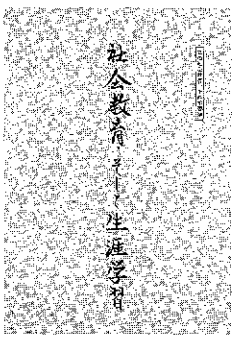 社会教育・そして生涯学習